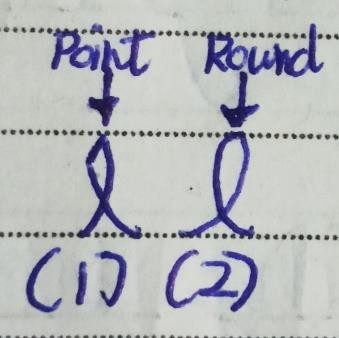 Point Round
l l
(1) (2)